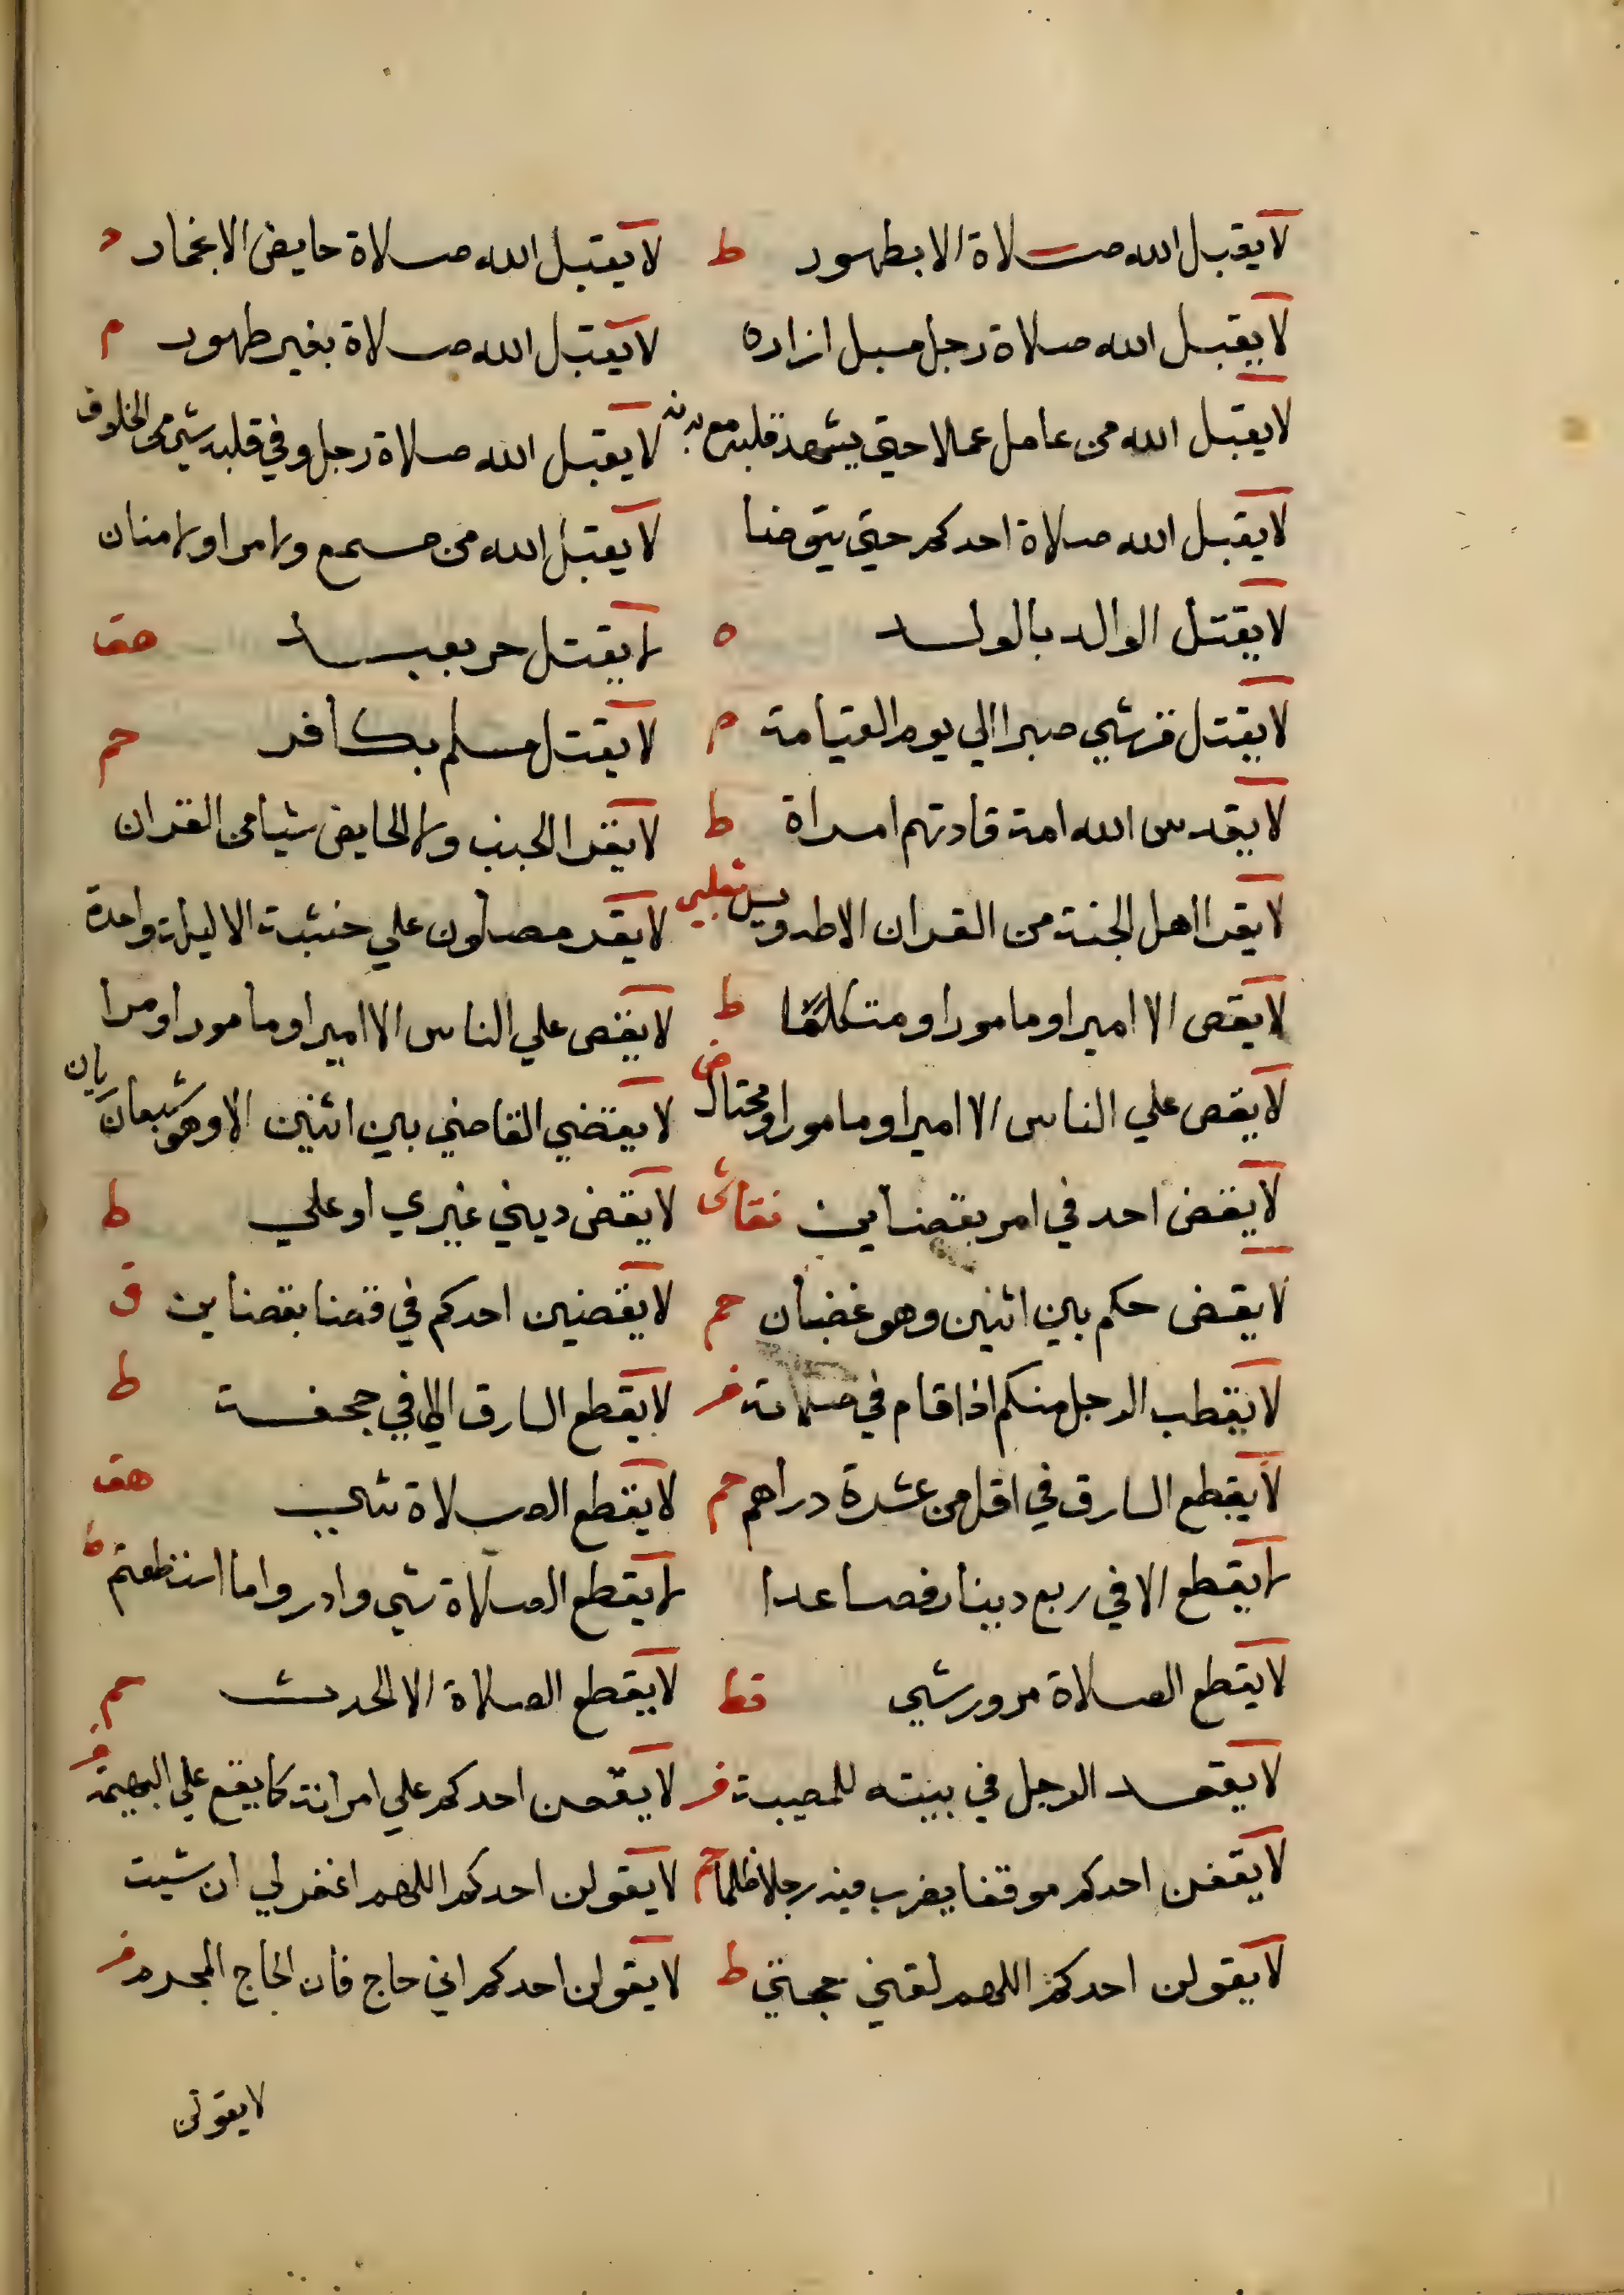 لا يقبل الله صلاة الا بطهور ط لا يقبل الله صلاة حايض الا بخمار د
لا يقبل الله صلاة رجل مسبل ازاره لا يقبل الله صلاة بغير طهور م
لا يقبل الله من عامل عملا حتي يشهد قلبه مع بدنه لا يقبل الله صلاة رجل وفي قلبه شي من الخلوق
لا يقبل الله صلاة احدكم حتي يتوضا لا يقبل الله من مسمع ولا مراو ولا منان
لا يقتل الوالد بالولد ه لا يقتل حر بعبد هق
لا يقتل قرشي صبرا الي يوم القيامة م لا يقتل مسلم بكافر حم
لا يقدس الله امة قادتهم امراة ط لا يقرا الجنب ولا الحايض شيا من القران
لا يقرا اهل الجنة من القران الا طه ويس ثعلبي لا يقر مصلون علي خشبة الا ليلة واحدة
لا يقص الا امير او مامور او متكلفا ط لا يقص علي الناس الا امير او مامور او مرا
لا يقص علي الناس الا امير او مامور او محتال ض لا يقضي القاضي بين اثنين الا وهو شبعان ريان
لا يقض احد في امر بقضاين نقاش لا يقض ديني غيري او علي ط
لا يقض حكم بين اثنين وهو غضبان حم لا يقضين احدكم في قضا بقضاين ق
لا يقطب الرجل منكم اذا قام في صلاته فر لا يقطع السارق الا في جحفة ط
لا يقطع السارق في اقل من عشرة دراهم حم لا يقطع الصلاة شي هق
لا يقطع الا في ربع دينار فصاعدا لا يقطع الصلاة شي وادروا ما استطعتم ط
لا يقطع الصلاة مرور شي قط لا يقطع الصلاة الا الحدث حم
لا يقعد الرجل في بيته للمصيبة فر لا يقعن احدكم علي امراته كما يقع علي البهيمة فر
لا يقفن احدكم موقفا يضرب فيه رجلا ظلما حم لا يقولن احدكم اللهم اغفر لي ان شيت
لا يقولن احدكم اللهم لقني حجتي ط لا يقولن احدكم اني حاج فان الحاج المجرم فر
لا يقولن